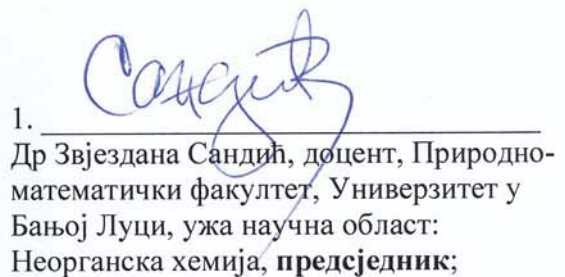 Сандић
1.
Др Звјездана Сандић, доцент, Природно-
математички факултет, Универзитет у
Бањој Луци, ужа научна област:
Неорганска хемија, предсједник;